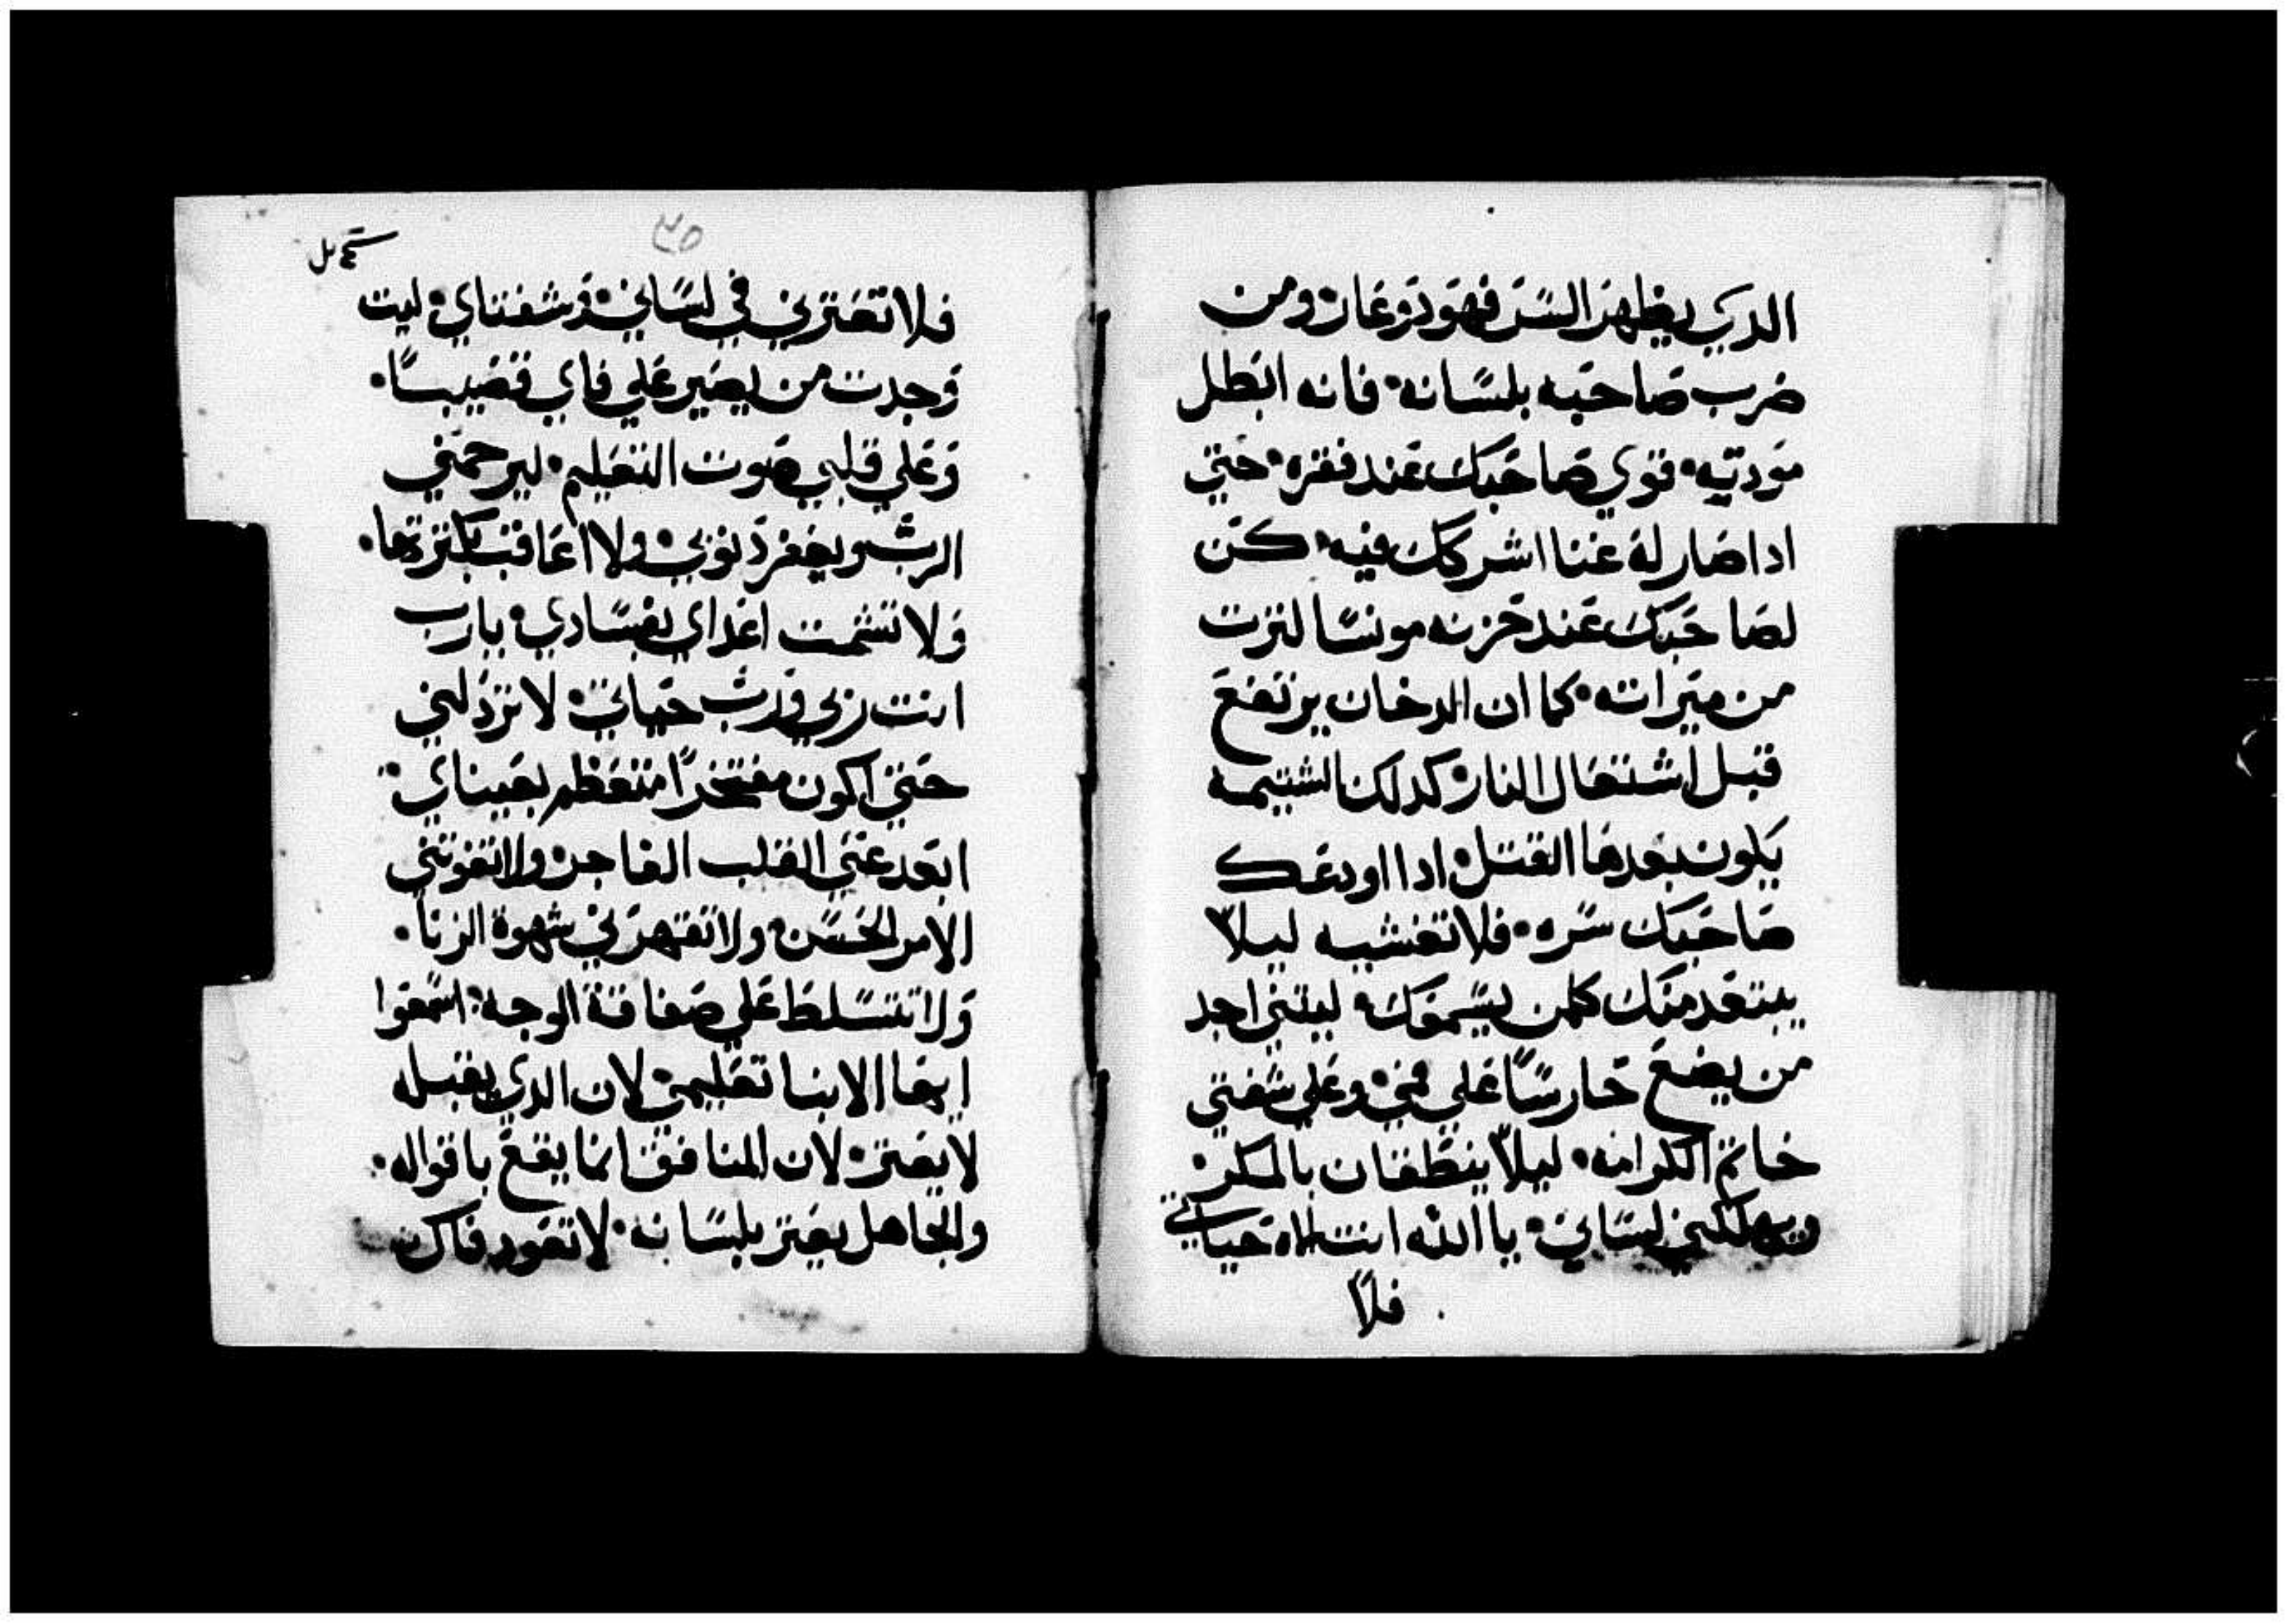 الدي يظهر السر فهو دو عار ومن
ضرب صاحبه بلسانه فانه ابطل
مودته قوي صاحبك عند فقره حتي
ادا صار له غنا اشركك فيه كن
لصاحبك عند حزنه مونسا لترت
من ميراته كما ان الدخان يرتفع
قبل اشتعال النار كدلك الشتيمه
يكون بعدها القتل ادا اودعك
صاحبك سره فلا تفشيه ليلا
يبتعد منك كلمن يسمعك ليتني اجد
من يضع حارسًا علي فمي وعلي شفتي
خاتم الكرامه ليلا ينطقان بالمكر
ويهلكني لساني يا الله انت اله حياتي
فلا
٣٥
فلا تعترني في لساني وشفتاي ليت
وجدت من يصير علي فاي قضيبًا
وعلي قلبي صوت التعليم ليرحمني
الرب ويغفر دنوبي ولا اعاقب بكترتها
ولا تشمت اعداي بفسادي يارب
انت ربي ورب حياتي لا تردلني
حتي اكون مفتخرًا متعظم بعيناي
ابعد عني القلب الفاجر ولا تفوتني
الامر الحسن ولا تقهرني شهوة الزنا
ولا تتسلط علي صفاقة الوجه اسمعوا
ايها الابنا تعليمي لان الدي يقبله
لا يعتر لان المنافق انما يقع باقواله
والجاهل يعتر بلسانه لا تعود فاك